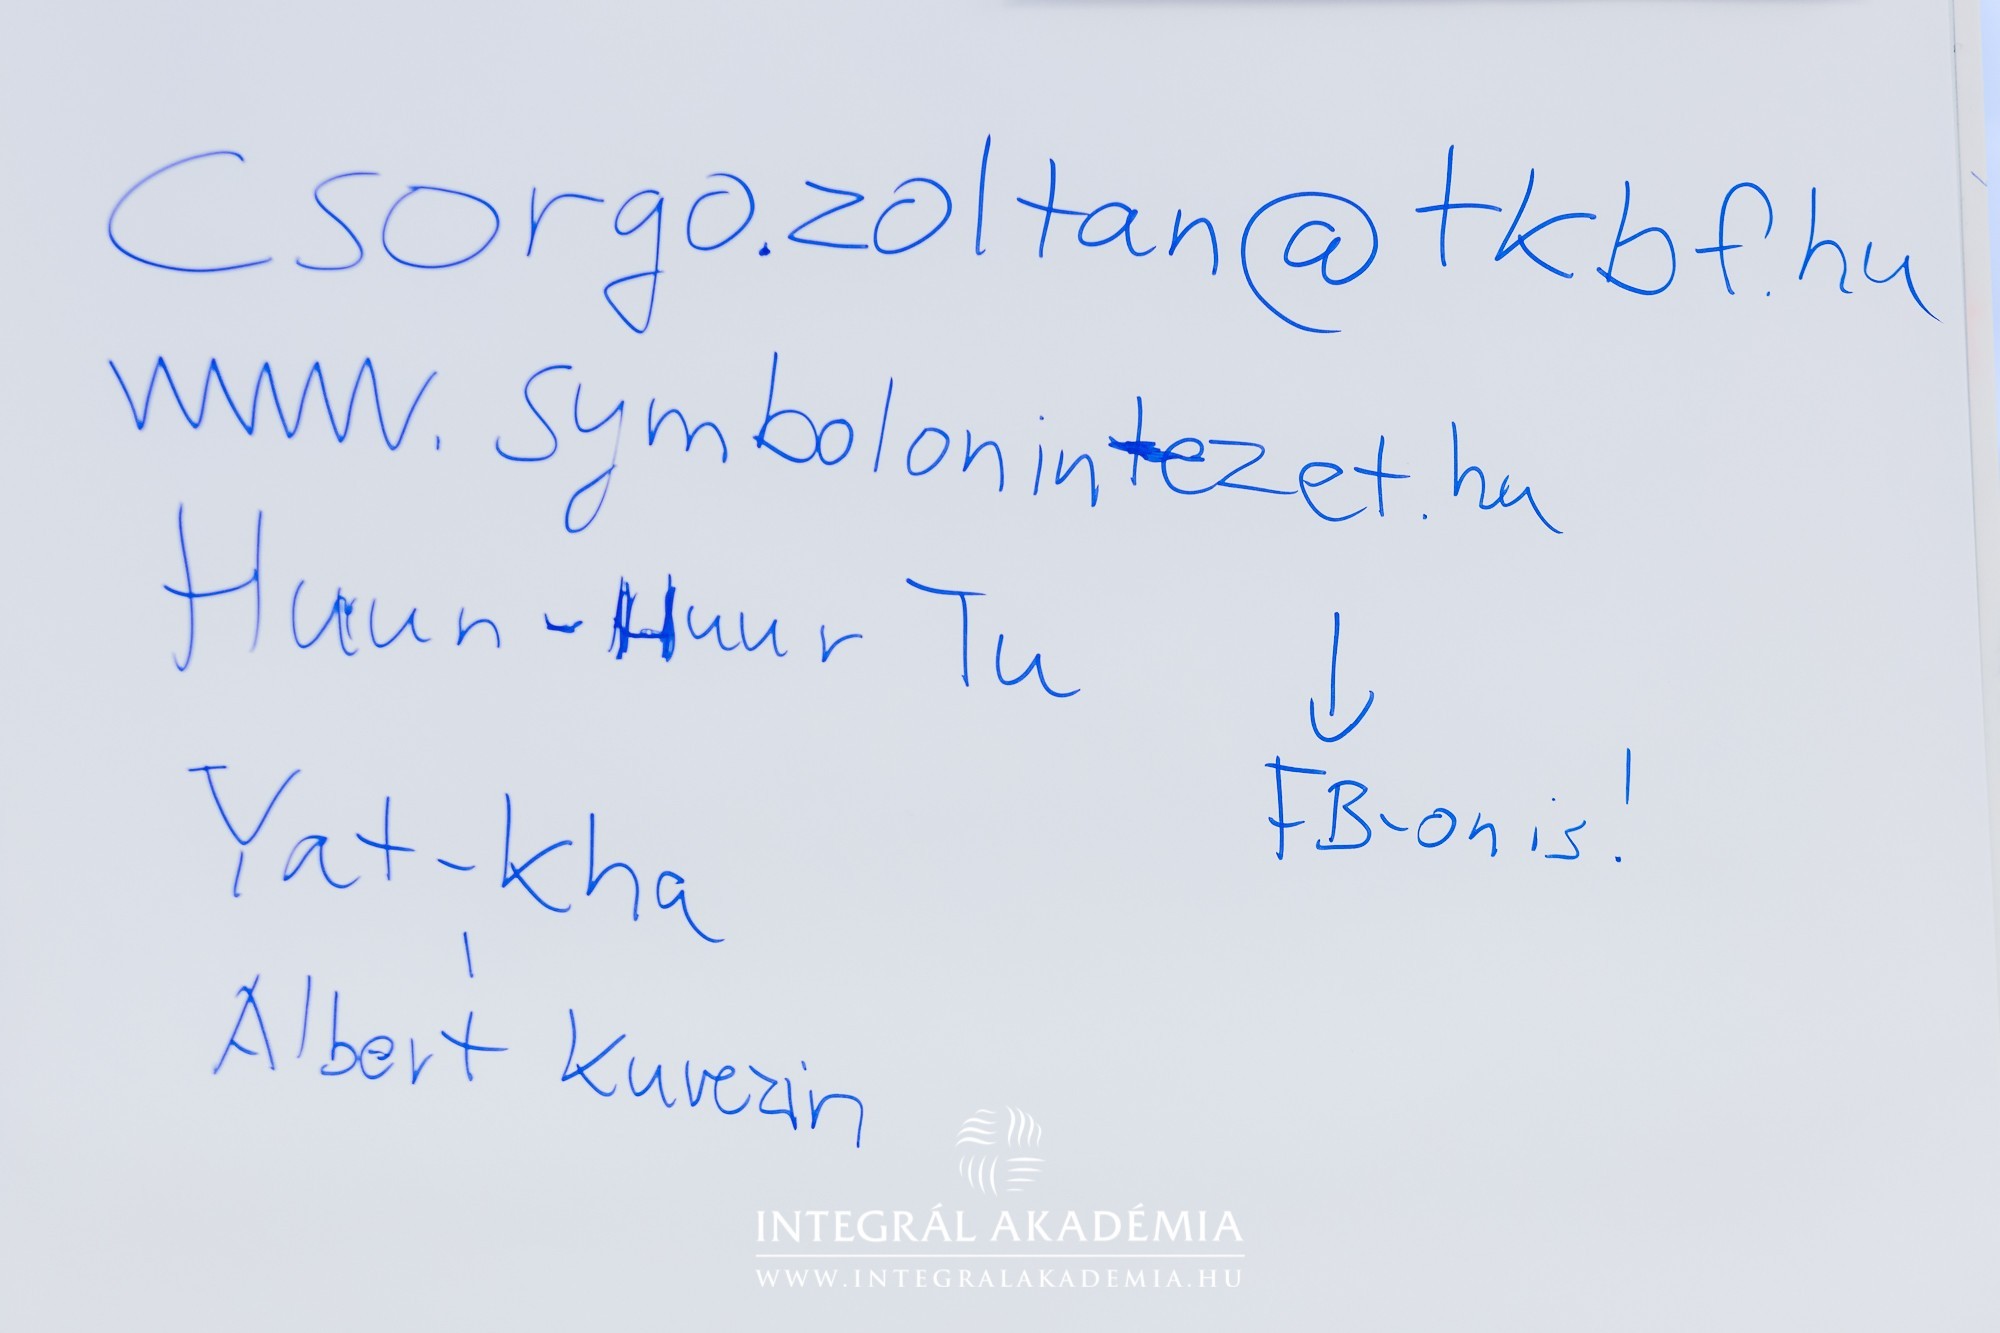 Csorgo.zoltan@tkbf.hu
www.symbolonintezet.hu
Huun-Huur Tu
↓
FB-on is!
Yat-kha
Albert Kuvezin
INTEGRÁL AKADÉMIA
WWW.INTEGRALAKADEMIA.HU